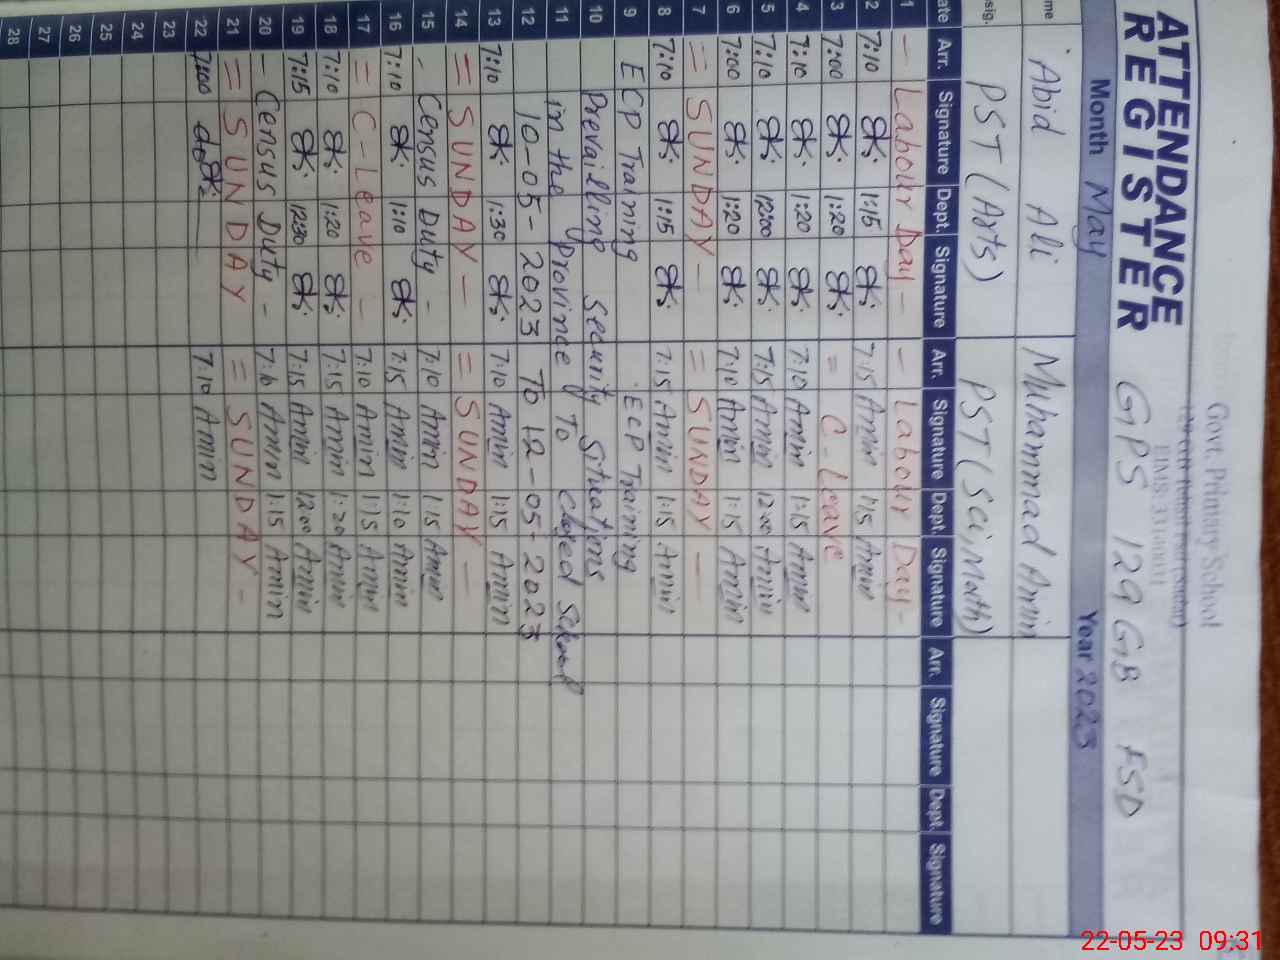 Govt. Primary School
ATTENDANCE
REGISTER GPS 129 GB FSD
Month May Year 2023
me Abid Ali Muhammad Amin
sig. PST (Arts) PST (Sci, Math)
ate Arr. Signature Dept. Signature Arr. Signature Dept. Signature Arr. Signature Dept. Signature
1 - Labour Day - - Labour Day -
2 7:10 1:15 7:15 Amin 1:15 Amin
3 7:00 1:20 = C-Leave
4 7:10 1:20 7:10 Amin 1:15 Amin
5 7:10 12:00 7:15 Amin 12:00 Amin
6 7:00 1:20 7:10 Amin 1:15 Amin
7 = SUNDAY - = SUNDAY -
8 7:10 1:15 7:15 Amin 1:15 Amin
9 ECP Training ECP Training
10 Prevailling Security Situations
11 in the province To Closed School
12 10-05-2023 To 12-05-2023
13 7:10 1:30 7:10 Amin 1:15 Amin
14 = SUNDAY - = SUNDAY -
15 - Census Duty - 7:10 Amin 1:15 Amin
16 7:10 1:10 7:15 Amin 1:10 Amin
17 = C-Leave - 7:10 Amin 1:15 Amin
18 7:10 1:20 7:15 Amin 1:20 Amin
19 7:15 12:30 7:15 Amin 12:00 Amin
20 - Census Duty - Amin 1:15 Amin
21 = SUNDAY = SUNDAY -
22 7:00 7:10 Amin
23
24
25
26
27
28
22-05-23 09:31